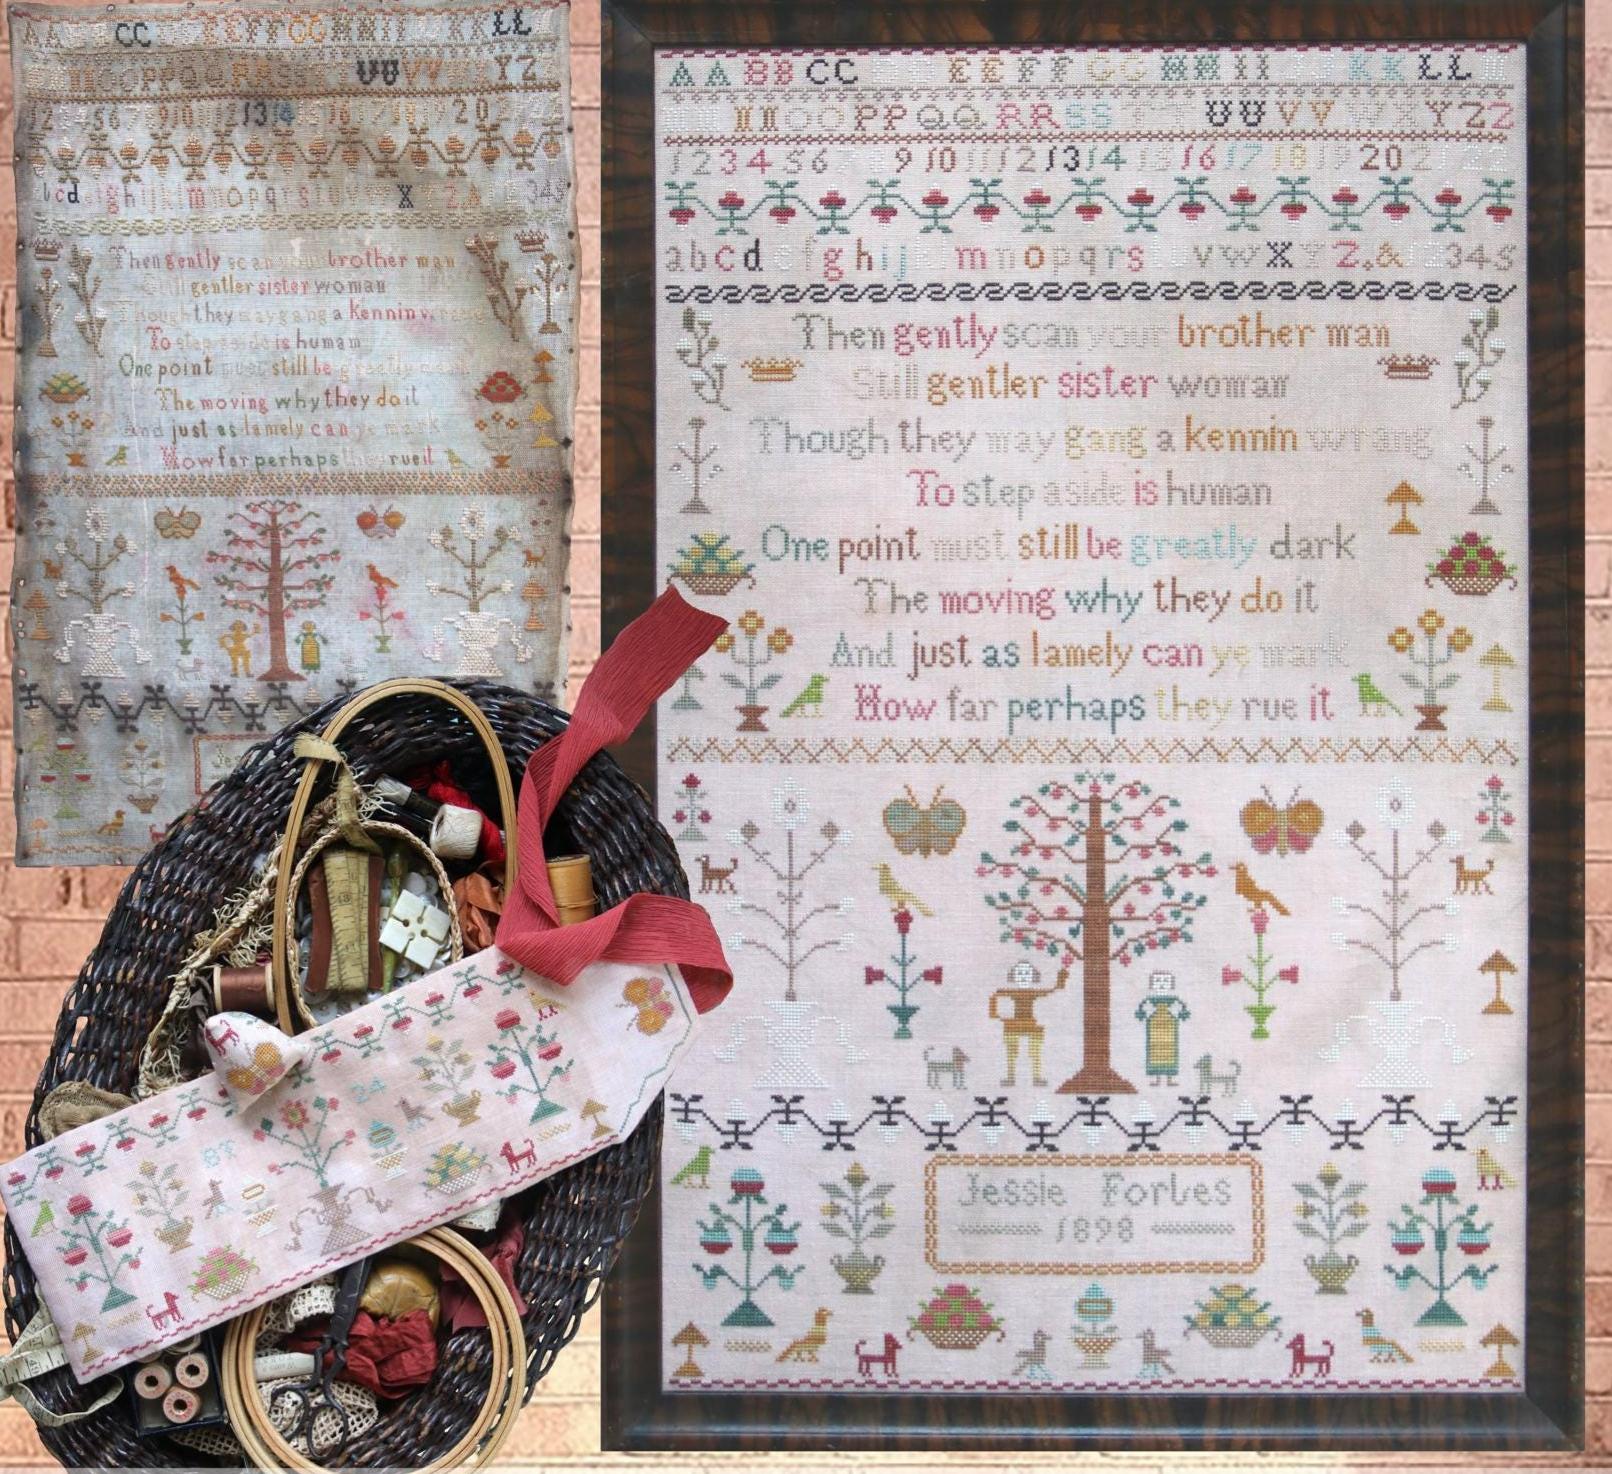 CC EE FF GG HH II KK LL
OO PP QQ RR UU VV YZ
9 10 11 12 13 14 16 20
Then gently scan your brother man
Still gentler sister woman
Though they may gang a kennin wrang
To step aside is human
One point must still be greatly
The moving why they do it
And just as lamely can ye mark
How far perhaps they rue it
AA BB CC EE FF GG HH II KK LL
NN OO PP QQ RR SS TT UU VV W X Y Z Z
1 2 3 4 5 6 7 8 9 10 11 12 13 14 15 16 17 18 19 20
abcdefghij mnopqrs vwXYZ.& 2345
Then gently scan your brother man
Still gentler sister woman
Though they may gang a kennin wrang
To step aside is human
One point must still be greatly dark
The moving why they do it
And just as lamely can ye mark
How far perhaps they rue it
Jessie Forbes
1898
24
87